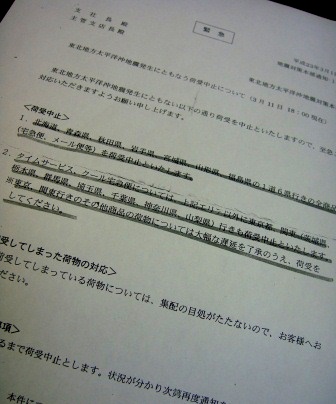 支 社 長 殿
主管支店長 殿
緊 急
平成23年3月1
東北地方太平洋沖地震
地震対策本部通知1
東北地方太平洋沖地震発生にともなう荷受中止について(3月11日 18:00現在)
東北地方太平洋沖地震発生にともない以下の通り荷受を中止といたしますので、至急
対応いただきますようお願い申し上げます。
<荷受中止>
1.北海道、青森県、秋田県、岩手県、宮城県、山形県、福島県の1道6県行きの全商品
(宅急便、メール便等)を荷受中止といたします。
2.タイムサービス、クール宅急便については、上記エリア以外に東京都、関東(茨城県、
栃木県、群馬県、埼玉県、千葉県、神奈川県、山梨県)行きも荷受中止といたします。
※東京、関東行きのその他商品の荷物については大幅な遅延を了承のうえ、荷受を
してください。
受してしまった荷物の対応>
荷受してしまっている荷物については、集配の目処がたたないので、お客様へお
ださい。
事項>
るまで荷受中止とします。状況が分かり次第再度通知を
本件に